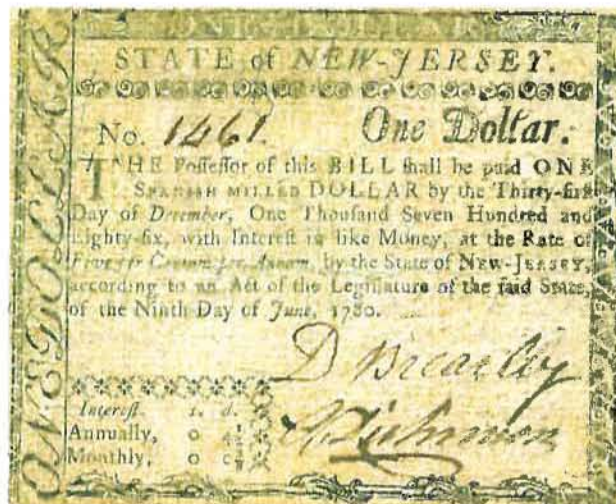 ONE DOLLAR
STATE of NEW-JERSEY.
No. 1461. One Dollar.
THE Poſſeſſor of this BILL ſhall be paid ONE
SPANISH MILLED DOLLAR by the Thirty-firſt
Day of December, One Thouſand Seven Hundred and
Eighty-ſix, with Intereſt in like Money, at the Rate of
Five per Centum per Annum, by the State of NEW-JERSEY,
according to an Act of the Legiſlature of the ſaid State,
of the Ninth Day of June, 1780.
D Brearley
Intereſt. s. d.
Annually, 0 4½
Monthly, 0